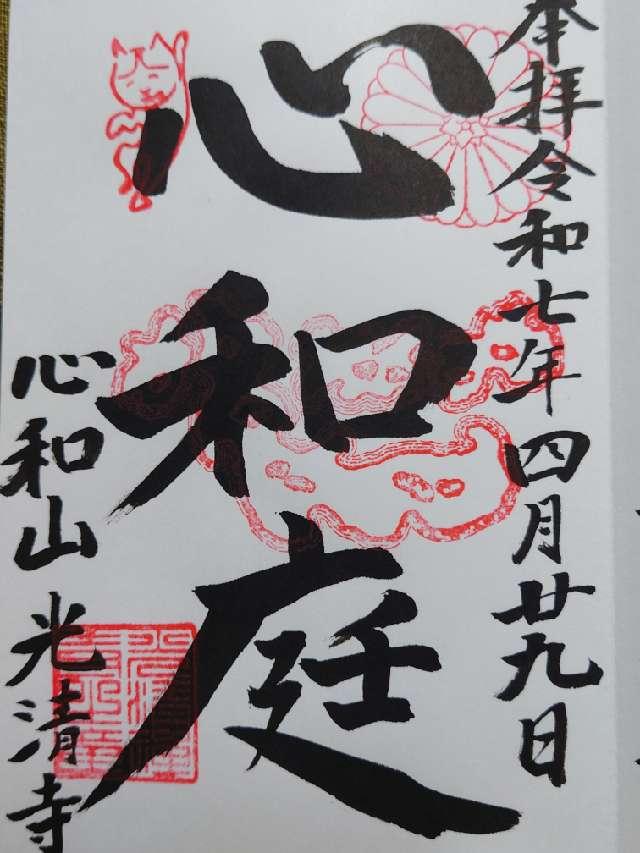 奉拝令和七年四月廿九日
心和庭
心和山 光清寺